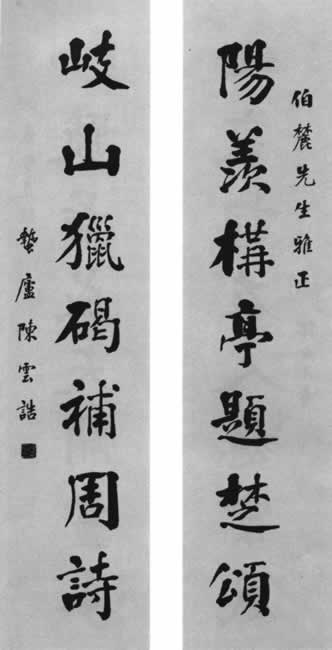 伯麓先生雅正
陽羨構亭題楚頌
岐山獵碣補周詩
蟄廬陳雲誥